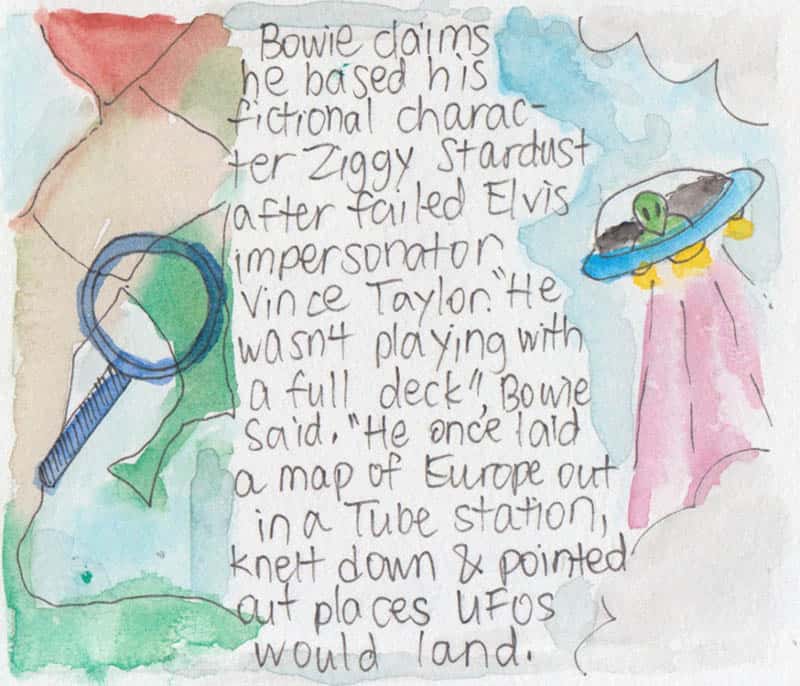 Bowie claims
he based his
fictional charac-
ter Ziggy Stardust
after failed Elvis
impersonator
Vince Taylor. "He
wasn't playing with
a full deck", Bowie
said. "He once laid
a map of Europe out
in a Tube station,
knelt down & pointed
out places UFOs
would land.